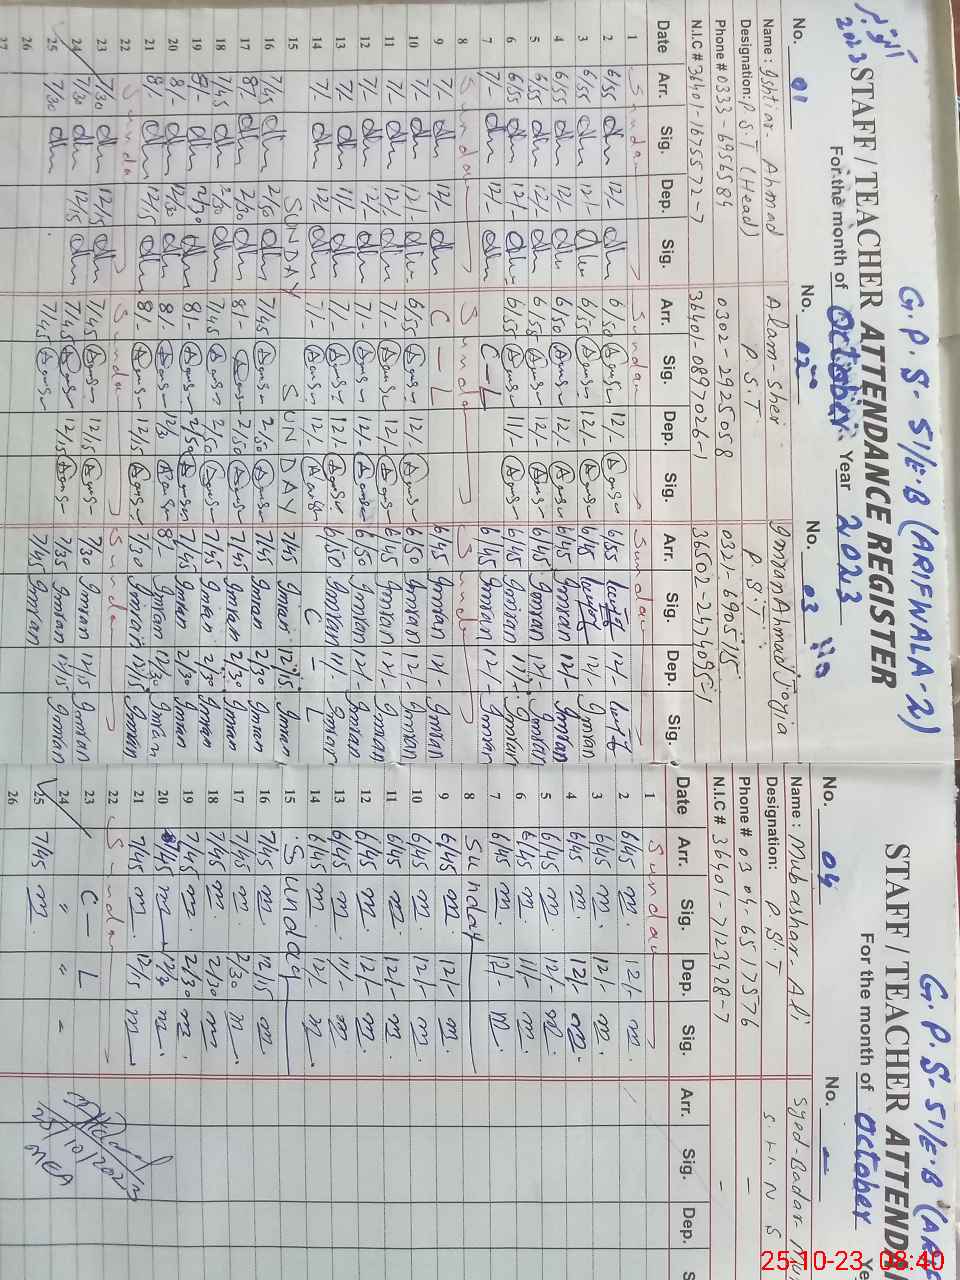 اکتوبر
2023
G.P.S- 51/E.B (ARIFWALA-2)
STAFF / TEACHER ATTENDANCE REGISTER
For the month of October Year 2023
No. 01
Name: Ishtiaq Ahmad
Designation: P.S.T (Head)
Phone # 0333-6956584
N.I.C # 36401-1675572-7
No. 02
Alam-Sher
P.S.T
0302-2925058
36401-0897026-1
No. 03
Imran Ahmad Joyia
P.S.T
0321-6905715
36502-2474095-1
Date Arr. Sig. Dep. Sig. Arr. Sig. Dep. Sig. Arr. Sig. Dep. Sig.
1 Sunday Sunday Sunday
2 6/55 12/- 6/50 12/- 6/55 12/-
3 6/55 12/- 6/55 12/- 6/45 12/- Imran
4 6/55 12/- 6/50 12/- 6/45 Imran 12/- Imran
5 6/55 12/- 6/55 12/- 6/45 Imran 12/- Imran
6 6/55 12/- 6/55 11/- 6/45 Imran 11/- Imran
7 7/- 12/- C-L 6/45 Imran 12/- Imran
8 Sunday Sunday Sunday
9 7/- 12/- C-L 6/45 Imran 12/- Imran
10 7/- 12/- 6/55 12/- 6/50 Imran 12/- Imran
11 7/- 12/- 7/- 12/- 6/45 Imran 12/- Imran
12 7/- 12/- 7/- 12/- 6/50 Imran 12/- Imran
13 7/- 11/- 7/- 12/- 6/50 Imran 11/- Imran
14 7/- 12/- 7/- 12/- C-L
15 SUNDAY SUNDAY 7/45 Imran 12/15 Imran
16 7/45 2/30 7/45 2/50 7/45 Imran 2/30 Imran
17 8/- 2/30 8/- 2/50 7/45 Imran 2/30 Imran
18 7/45 2/30 7/45 2/50 7/45 Imran 2/30 Imran
19 8/- 2/30 8/- 2/50 7/45 Imran 2/30 Imran
20 8/- 12/30 8/- 12/3 8/- Imran 12/30 Imran
21 8/- 12/15 8/- 12/15 7/30 Imran 12/15 Imran
22 Sunda Sunda Sunday
23 7/30 12/15 7/45 12/15 7/30 Imran 12/15 Imran
24 7/30 12/15 7/45 12/15 7/35 Imran 12/15 Imran
25 7/30 7/45 7/45 Imran
26
27
G.P.S- 51/E.B (AR
STAFF / TEACHER ATTENDA
For the month of October Ye
No. 04
Name: Mubashar-Ali
Designation: P.S.T
Phone # 0304-6517576
N.I.C # 36401-7123428-7
No. -
Syed-Badar-Mu
S H N S
-
-
Date Arr. Sig. Dep. Sig. Arr. Sig. Dep. S
1 Sunday
2 6/45 m. 12/- m.
3 6/45 m. 12/- m.
4 6/45 m. 12/- m.
5 6/45 m. 12/- m.
6 6/45 m. 11/- m.
7 6/45 m. 12/- m.
8 Sunday
9 6/45 m. 12/- m.
10 6/45 m. 12/- m.
11 6/45 m. 12/- m.
12 6/45 m. 12/- m.
13 6/45 m. 11/- m.
14 6/45 m. 12/- m.
15 Sunday
16 7/45 m. 12/15 m.
17 7/45 m. 2/30 m.
18 7/45 m. 2/30 m.
19 7/45 m. 2/30 m.
20 7/45 m. 12/30 m.
21 7/45 m. 12/15 m.
22 Sunday
23 C-L
24 " " -
25 7/45 m.
26
25/10/2023
MEA
25-10-23 08:40